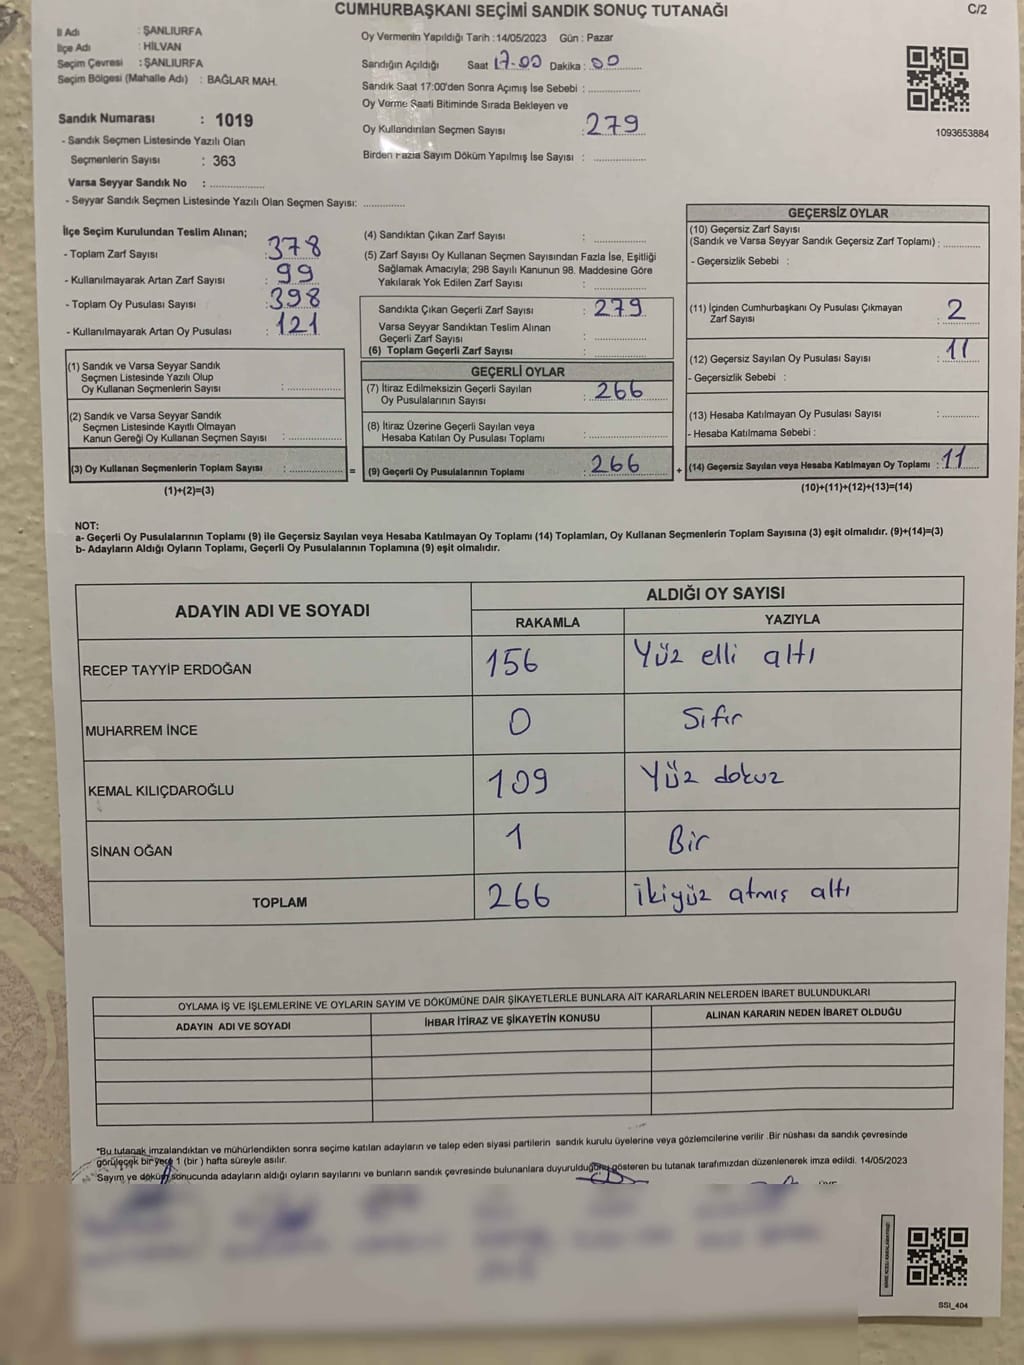 CUMHURBAŞKANI SEÇİMİ SANDIK SONUÇ TUTANAĞI
C/2
İl Adı : ŞANLIURFA
İlçe Adı : HİLVAN
Seçim Çevresi : ŞANLIURFA
Seçim Bölgesi (Mahalle Adı) : BAĞLAR MAH.
Sandık Numarası : 1019
- Sandık Seçmen Listesinde Yazılı Olan
Seçmenlerin Sayısı : 363
Varsa Seyyar Sandık No : ................
- Seyyar Sandık Seçmen Listesinde Yazılı Olan Seçmen Sayısı: ............
Oy Vermenin Yapıldığı Tarih :14/05/2023 Gün : Pazar
Sandığın Açıldığı Saat 17.00 Dakika : 00
Sandık Saat 17:00'den Sonra Açımış İse Sebebi : ................
Oy Verme Saati Bitiminde Sırada Bekleyen ve
Oy Kullandırılan Seçmen Sayısı : 279
Birden Fazla Sayım Döküm Yapılmış İse Sayısı : ................
1093653884
İlçe Seçim Kurulundan Teslim Alınan;
- Toplam Zarf Sayısı : 378
- Kullanılmayarak Artan Zarf Sayısı : 99
- Toplam Oy Pusulası Sayısı : 398
- Kullanılmayarak Artan Oy Pusulası : 121
(1) Sandık ve Varsa Seyyar Sandık
Seçmen Listesinde Yazılı Olup
Oy Kullanan Seçmenlerin Sayısı : ................
(2) Sandık ve Varsa Seyyar Sandık
Seçmen Listesinde Kayıtlı Olmayan
Kanun Gereği Oy Kullanan Seçmen Sayısı : ................
(3) Oy Kullanan Seçmenlerin Toplam Sayısı : ................ =
(1)+(2)=(3)
(4) Sandıktan Çıkan Zarf Sayısı : ................
(5) Zarf Sayısı Oy Kullanan Seçmen Sayısından Fazla İse, Eşitliği
Sağlamak Amacıyla; 298 Sayılı Kanunun 98. Maddesine Göre
Yakılarak Yok Edilen Zarf Sayısı : ................
Sandıkta Çıkan Geçerli Zarf Sayısı : 279
Varsa Seyyar Sandıktan Teslim Alınan
Geçerli Zarf Sayısı : ................
(6) Toplam Geçerli Zarf Sayısı : ................
GEÇERLİ OYLAR
(7) İtiraz Edilmeksizin Geçerli Sayılan
Oy Pusulalarının Sayısı : 266
(8) İtiraz Üzerine Geçerli Sayılan veya
Hesaba Katılan Oy Pusulası Toplamı : ................
(9) Geçerli Oy Pusulalarının Toplamı : 266 +
GEÇERSİZ OYLAR
(10) Geçersiz Zarf Sayısı
(Sandık ve Varsa Seyyar Sandık Geçersiz Zarf Toplamı) : ............
- Geçersizlik Sebebi :
(11) İçinden Cumhurbaşkanı Oy Pusulası Çıkmayan
Zarf Sayısı : 2
(12) Geçersiz Sayılan Oy Pusulası Sayısı : 11
- Geçersizlik Sebebi :
(13) Hesaba Katılmayan Oy Pusulası Sayısı : ............
- Hesaba Katılmama Sebebi :
(14) Geçersiz Sayılan veya Hesaba Katılmayan Oy Toplamı : 11
(10)+(11)+(12)+(13)=(14)
NOT:
a- Geçerli Oy Pusulalarının Toplamı (9) ile Geçersiz Sayılan veya Hesaba Katılmayan Oy Toplamı (14) Toplamları, Oy Kullanan Seçmenlerin Toplam Sayısına (3) eşit olmalıdır. (9)+(14)=(3)
b- Adayların Aldığı Oyların Toplamı, Geçerli Oy Pusulalarının Toplamına (9) eşit olmalıdır.
ADAYIN ADI VE SOYADI ALDIĞI OY SAYISI
RAKAMLA YAZIYLA
RECEP TAYYİP ERDOĞAN 156 Yüz elli altı
MUHARREM İNCE 0 Sıfır
KEMAL KILIÇDAROĞLU 109 Yüz dokuz
SİNAN OĞAN 1 Bir
TOPLAM 266 İkiyüz atmış altı
OYLAMA İŞ VE İŞLEMLERİNE VE OYLARIN SAYIM VE DÖKÜMÜNE DAİR ŞİKAYETLERLE BUNLARA AİT KARARLARIN NELERDEN İBARET BULUNDUKLARI
ADAYIN ADI VE SOYADI İHBAR İTİRAZ VE ŞİKAYETİN KONUSU ALINAN KARARIN NEDEN İBARET OLDUĞU
*Bu tutanak imzalandıktan ve mühürlendikten sonra seçime katılan adayların ve talep eden siyasi partilerin sandık kurulu üyelerine veya gözlemcilerine verilir .Bir nüshası da sandık çevresinde
görülecek bir yere 1 (bir ) hafta süreyle asılır.
Sayım ve döküm sonucunda adayların aldığı oyların sayılarını ve bunların sandık çevresinde bulunanlara duyurulduğunu gösteren bu tutanak tarafımızdan düzenlenerek imza edildi. 14/05/2023
SSI_404